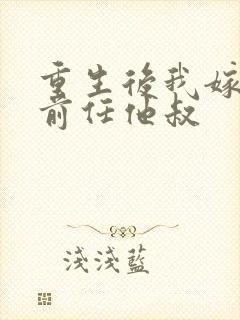 重生後我嫁
前任他叔
淺淺藍